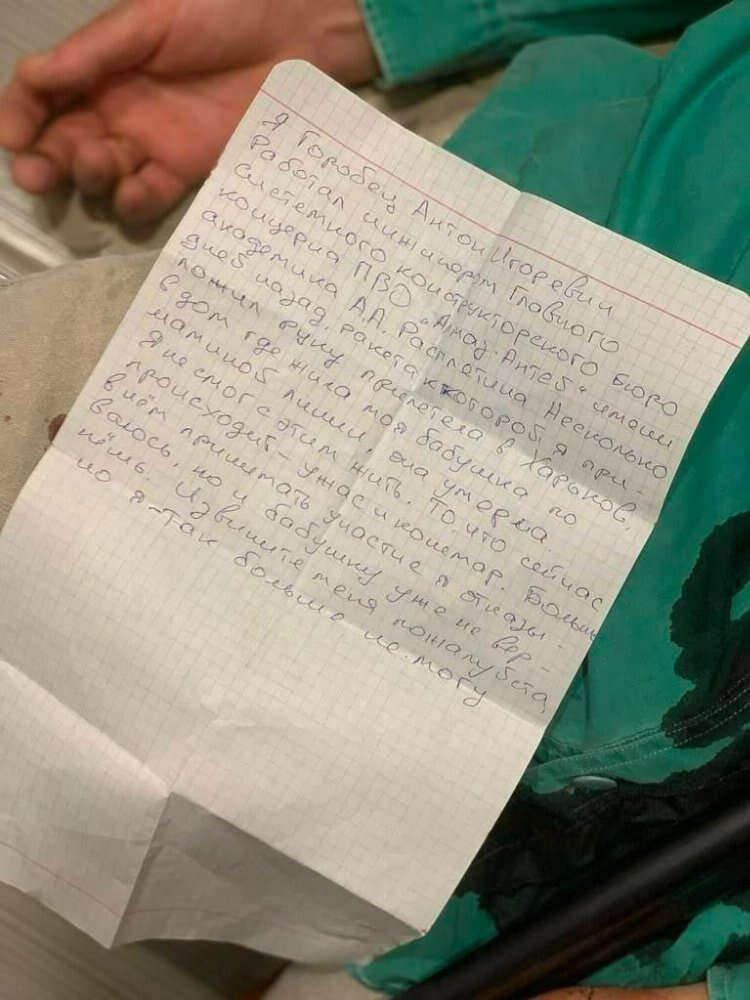 Я Горобец Антон Игоревич
Работал инжинером Главного
системного конструкторского бюро
концерна ПВО "Алмаз-Антей" имени
академика А.А. Расплетина Несколько
дней назад, ракета к которой я при-
ложил руку прилетела в Харьков,
в дом где жила моя бабушка по
маминой линии, она умерла.
Я не смог с этим жить. То что сейчас
происходит – ужас и кошмар. Больше
в нём принимать участие я отказы-
ваюсь, но и бабушку уже не вер-
нёшь. Извините меня пожалуйста,
но я – так больше не могу